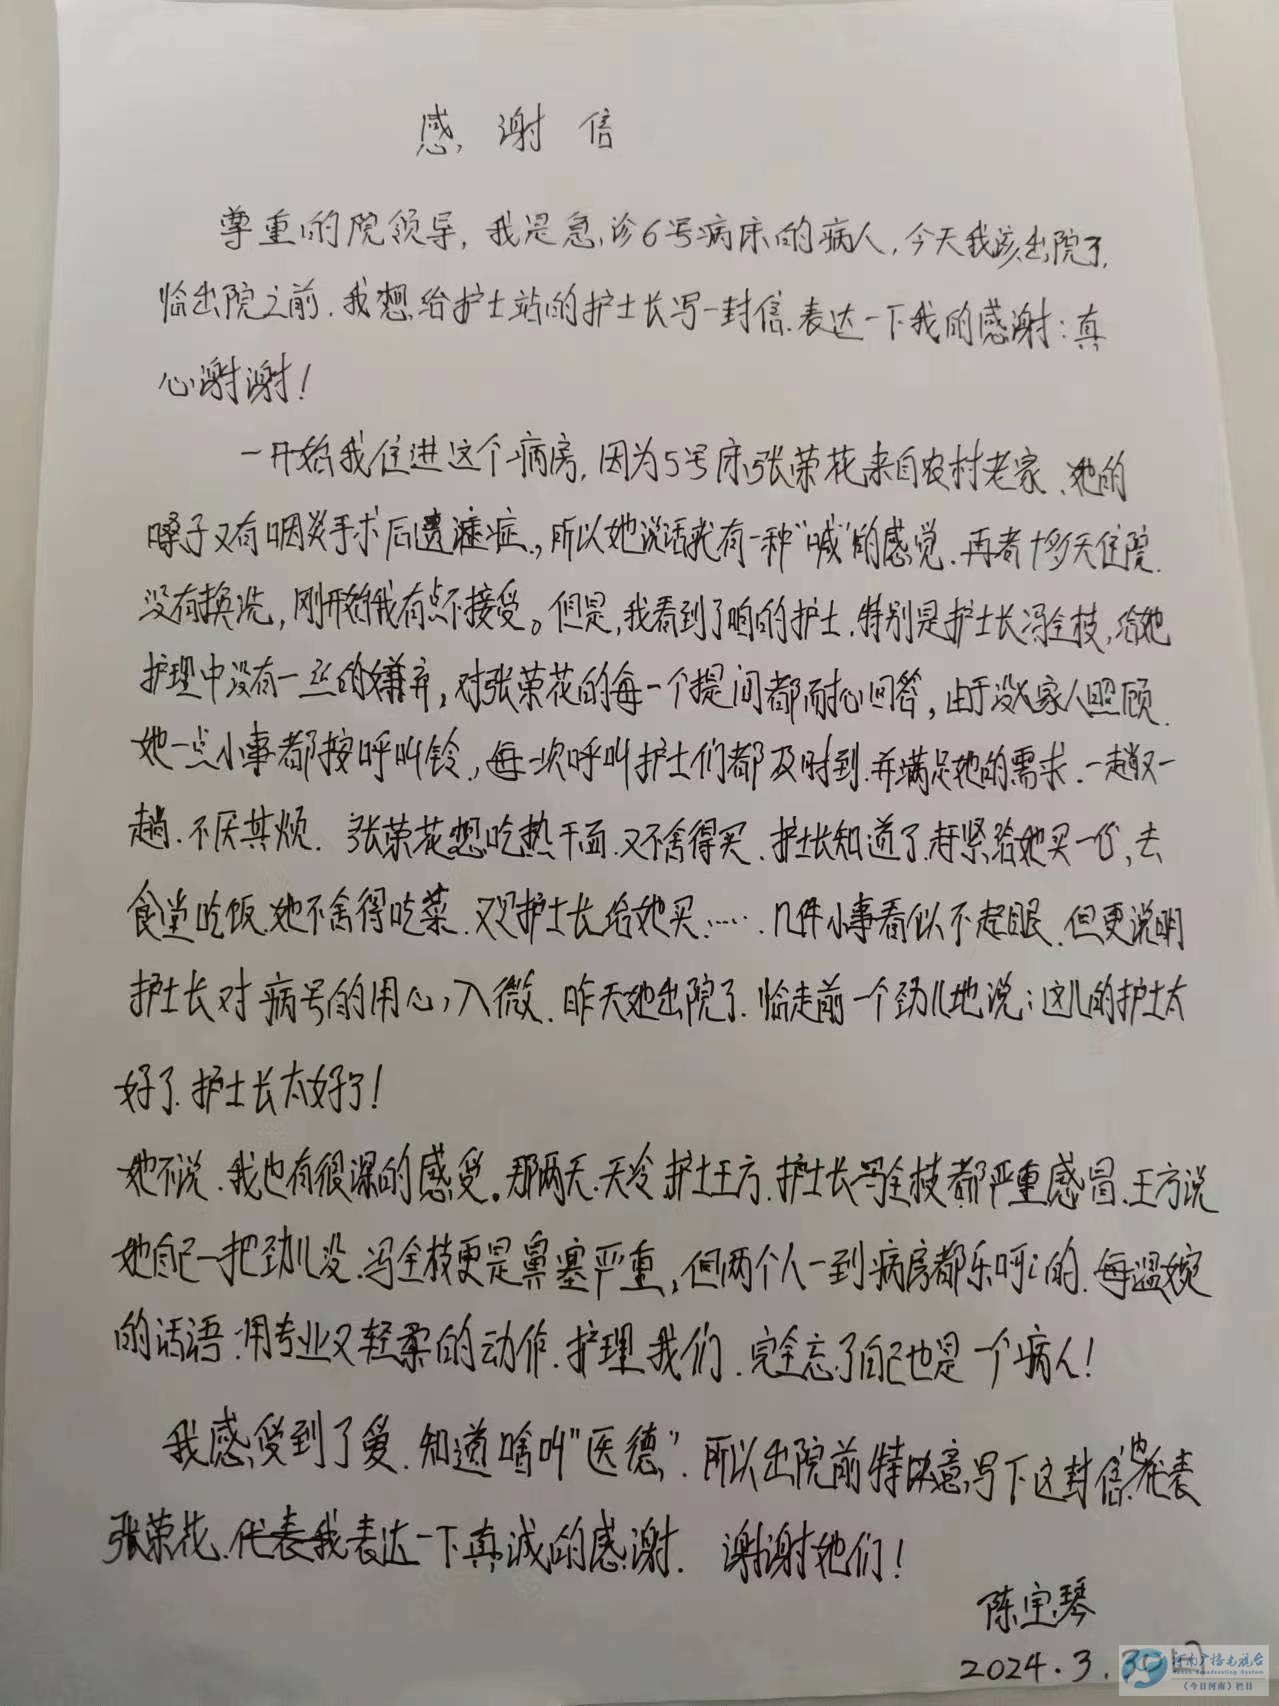 感谢信
尊重的院领导,我是急诊6号病床的病人,今天我该出院了,
临出院之前.我想给护士站的护士长写一封信.表达一下我的感谢:真
心谢谢!
一开始我住进这个病房,因为5号床张荣花来自农村老家、她的
嗓子又有咽炎手术后遗症,所以她说话我有一种"喊"的感觉.再者十多天住院.
没有换洗,刚开始我有点不接受。但是,我看到了咱的护士.特别是护士长冯全枝,给她
护理中没有一丝的嫌弃,对张荣花的每一个提问都耐心回答,由于没人家人照顾.
她一点小事都按呼叫铃,每一次呼叫护士们都及时到.并满足她的需求.一趟又一
趟.不厌其烦.张荣花想吃热干面.又不舍得买.护士长知道了.赶紧给她买一份,去
食堂吃饭.她不舍得吃菜.又是护士长给她买.……几件小事看似不起眼.但更说明
护士长对病号的用心,入微.昨天她出院了.临走前一个劲儿地说:这儿的护士太
好了.护士长太好了!
她不说.我也有很深的感受。那两天.天冷护士王方.护士长冯全枝都严重感冒.王方说
她自己一把劲儿没.冯全枝更是鼻塞严重,但两个人一到病房都乐呵呵的.每温婉
的话语.用专业又轻柔的动作.护理我们.完全忘了自己也是一个病人!
我感受到了爱.知道啥叫"医德".所以出院前特意写下这封信.也代表
张荣花.代表我表达一下真诚的感谢.谢谢她们!
陈宝琴
2024.3.30日
河南广播电视台
Henan Broadcasting System
《今日河南》栏目